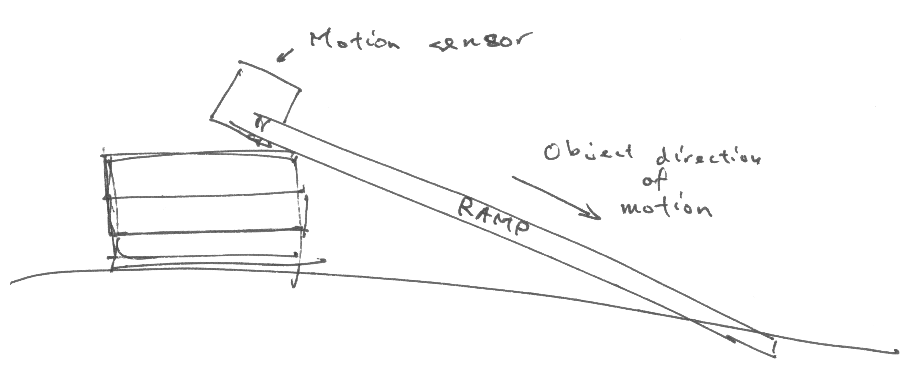 Motion sensor
Object direction
of
motion
RAMP